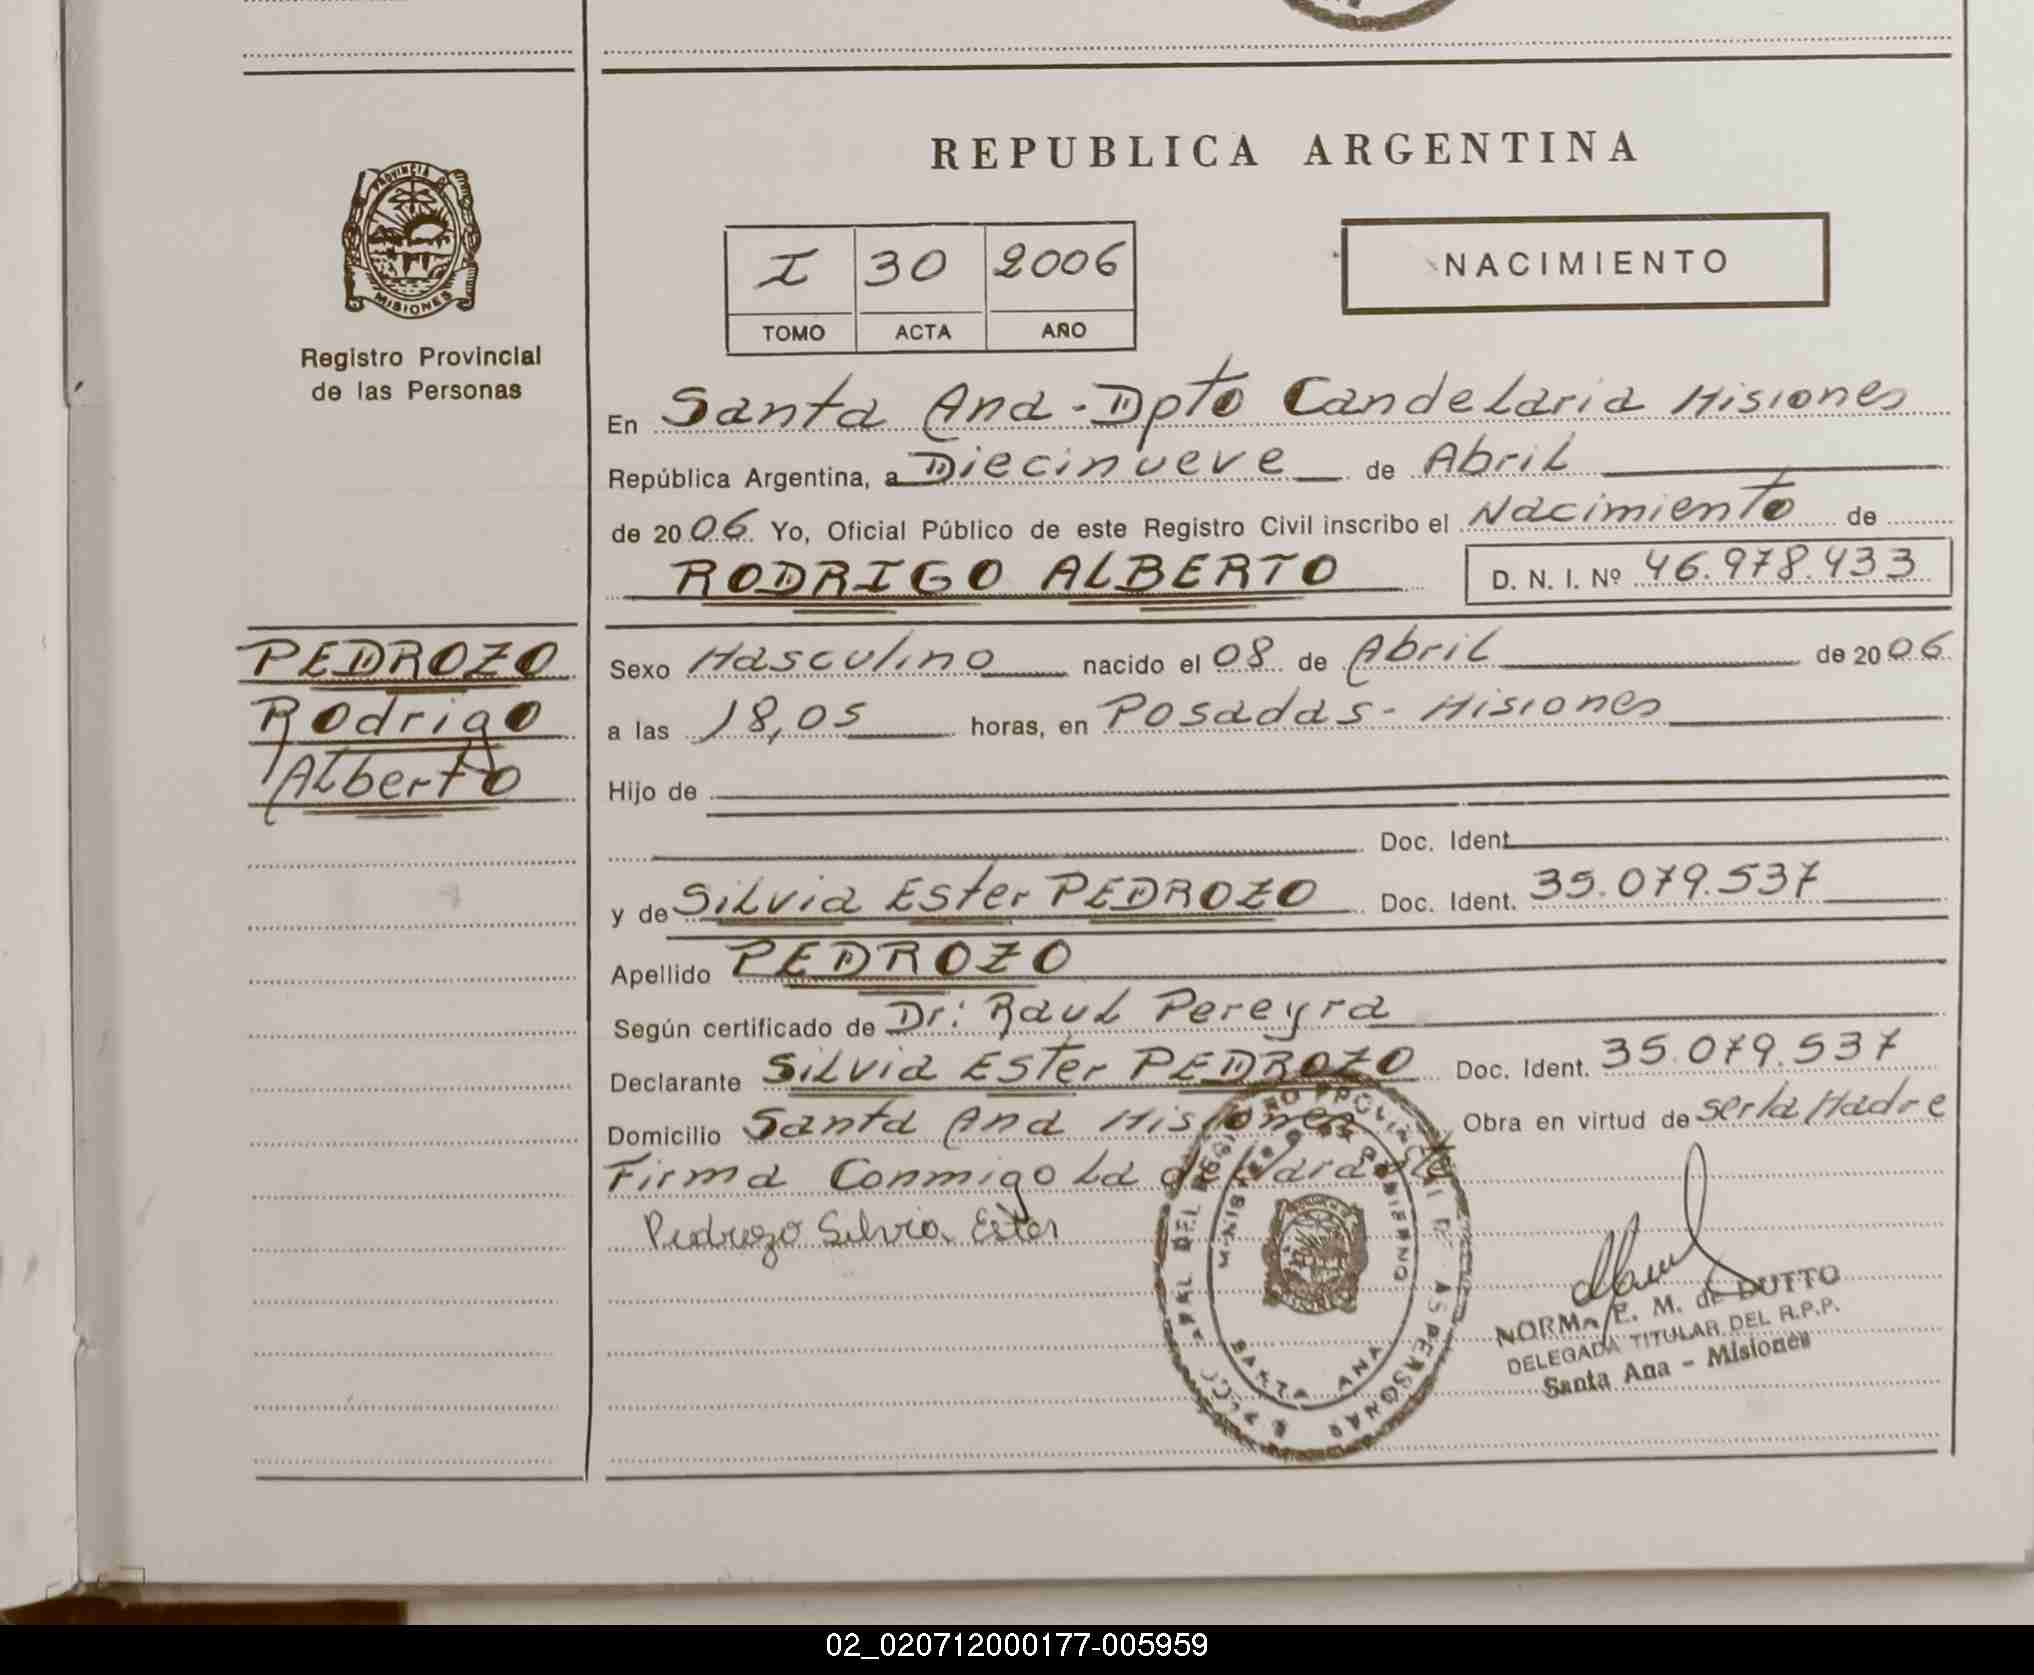 REPUBLICA ARGENTINA
PROVINCIA DE
MISIONES
Registro Provincial
de las Personas
I 30 2006
TOMO ACTA AÑO
NACIMIENTO
En Santa Ana - Dpto Candelaria Misiones
República Argentina, a Diecinueve de Abril
de 2006. Yo, Oficial Público de este Registro Civil inscribo el Nacimiento de
RODRIGO ALBERTO D. N. I. Nº 46.978.433
PEDROZO
Rodrigo
Alberto
Sexo Masculino nacido el 08 de Abril de 2006
a las 18,05 horas, en Posadas - Misiones
Hijo de
Doc. Ident.
y de Silvia Ester PEDROZO Doc. Ident. 35.079.537
Apellido PEDROZO
Según certificado de Dr: Raul Pereyra
Declarante Silvia Ester PEDROZO Doc. Ident. 35.079.537
Domicilio Santa Ana Misiones Obra en virtud de ser la Madre
Firma Conmigo La declarante
Pedrozo Silvia Ester
SANTA ANA
NORMA E. M. de DUTTO
DELEGADA TITULAR DEL R.P.P.
Santa Ana - Misiones
02_020712000177-005959